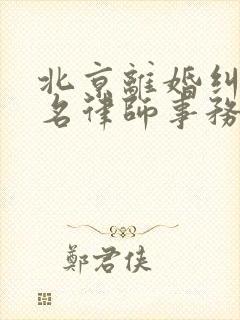 北京離婚糾
名律師事務
鄭君俠